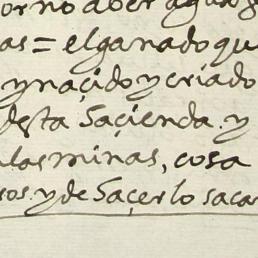 or no aber agua
as = el ganado qu
y naçido y criado
desta haçienda. y
las minas, cosa
sos. y de haçerlo saca